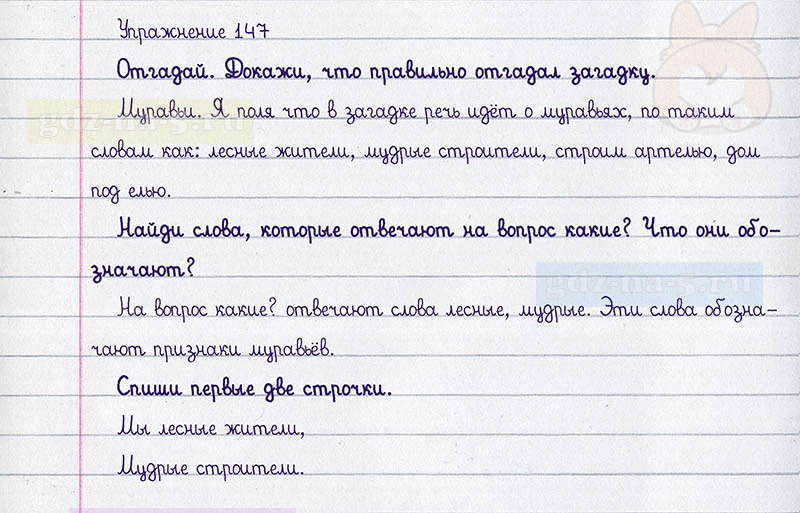 Упражнение 147
Отгадай. Докажи, что правильно отгадал загадку.
Муравьи. Я поля что в загадке речь идёт о муравьях, по таким
gdz-na-5.ru
словам как: лесные жители, мудрые строители, строим артелью, дом
под елью.
Найди слова, которые отвечают на вопрос какие? Что они обо-
значают?
gdz-na-5.ru
На вопрос какие? отвечают слова лесные, мудрые. Эти слова обозна-
чают признаки муравьёв.
Спиши первые две строчки.
Мы лесные жители,
Мудрые строители.